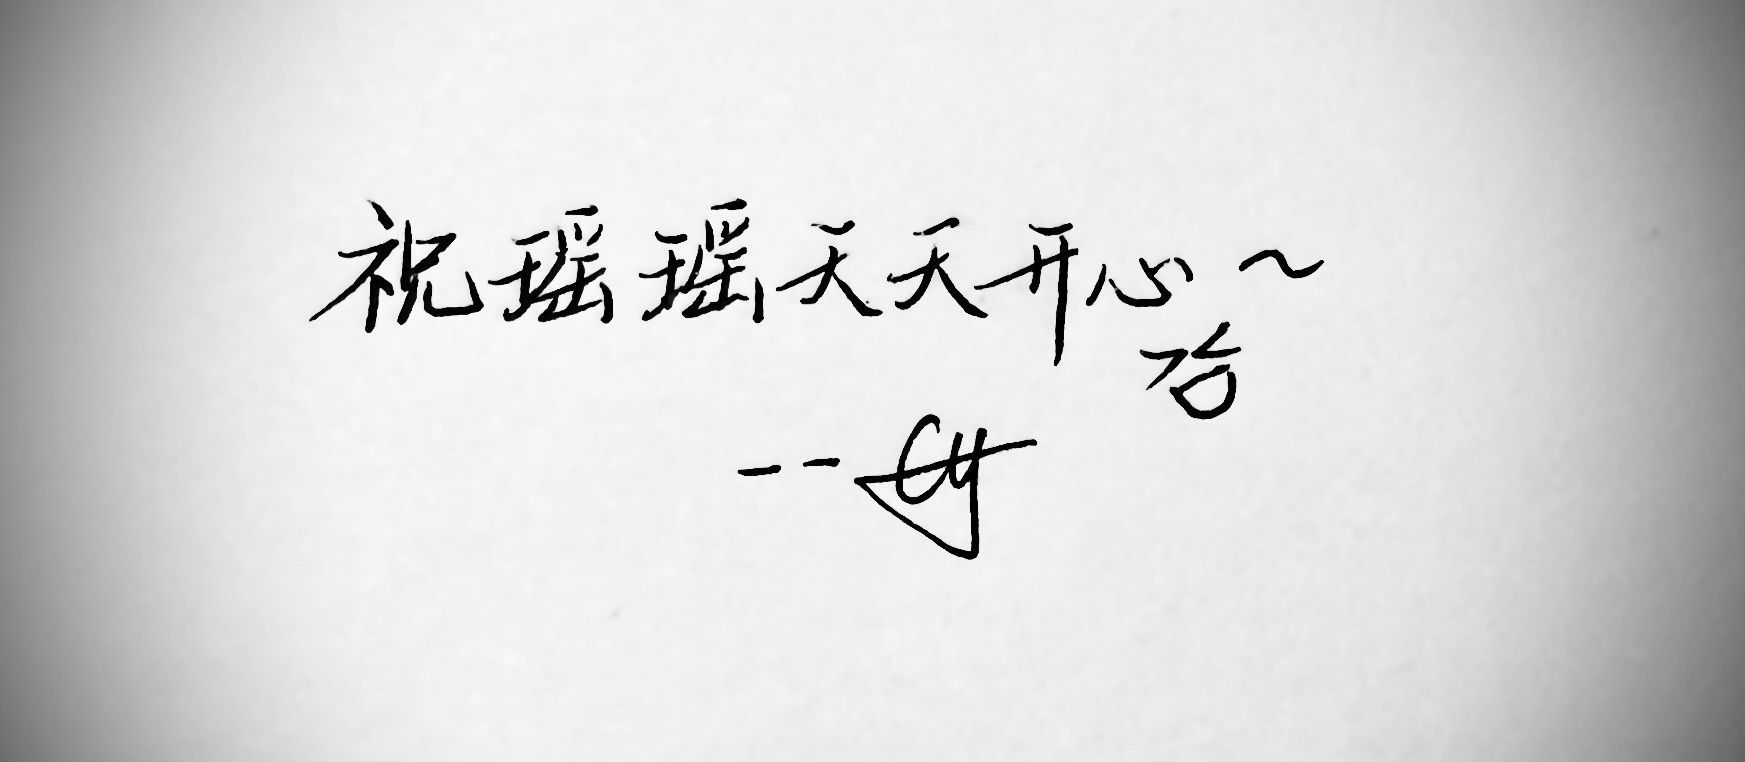 祝瑶瑶天天开心~
--cy